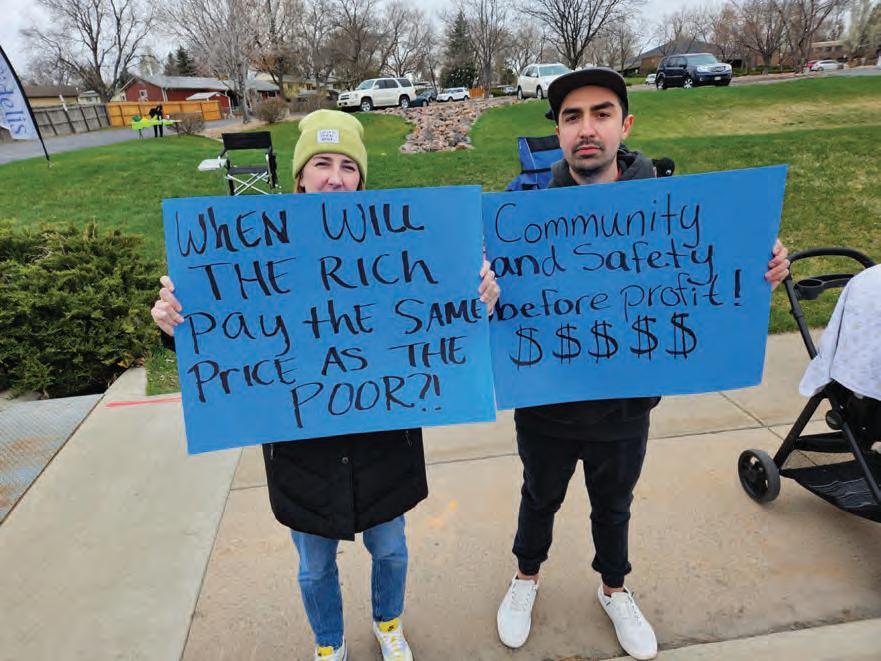 WHEN WILL
THE RICH
Pay the SAME
Price AS THE
POOR?!
Community
and Safety
before profit!
$$$$$